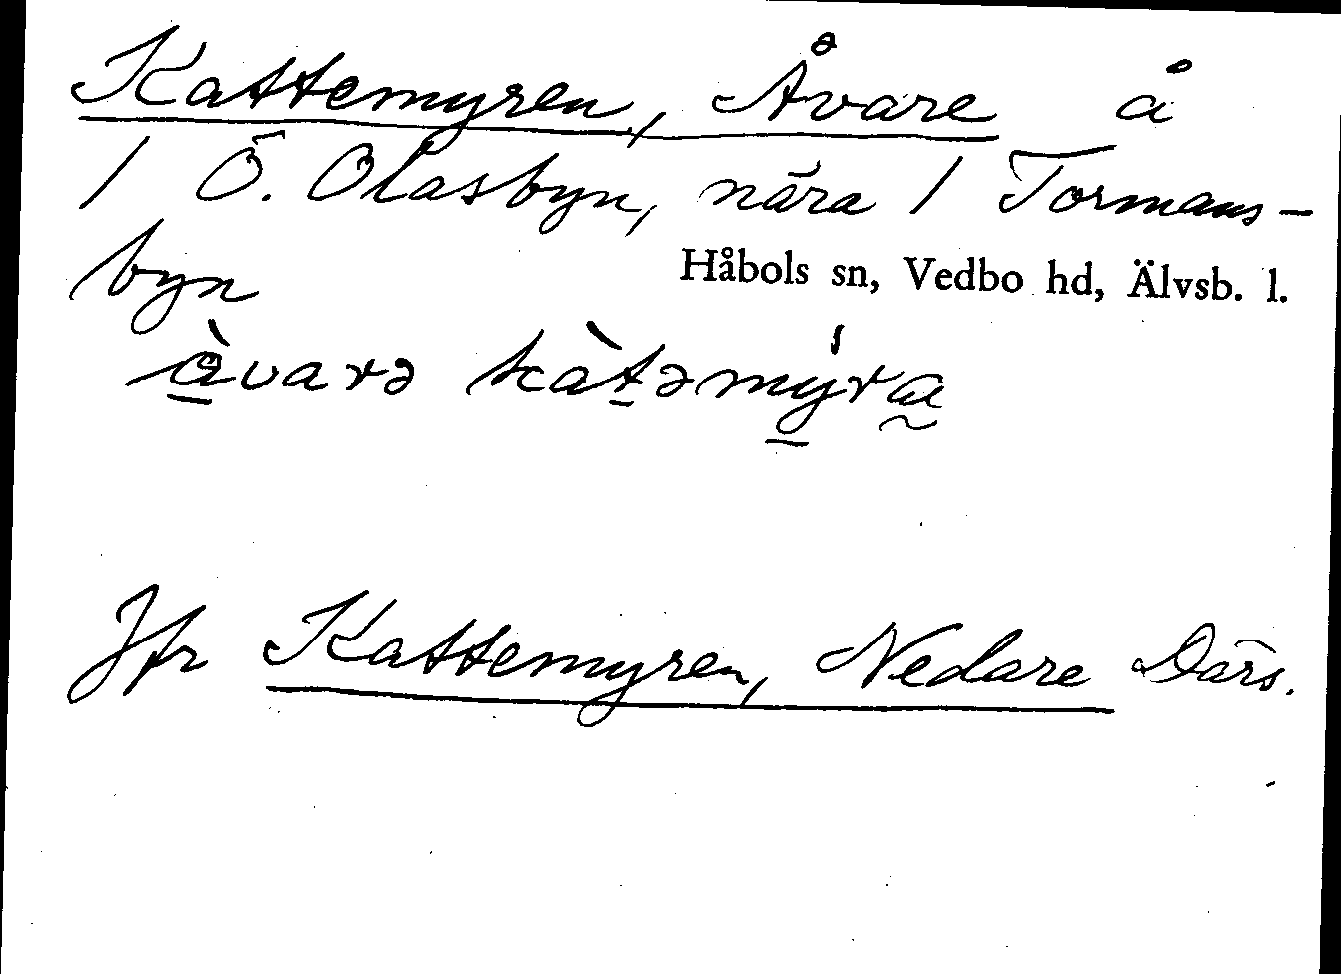 Kattemyren, Åvare å
1 Ö. Olasbyn, nära 1 Tormans-
byn
Håbols sn, Vedbo hd, Älvsb. l.
åvarə kàtəmýra
Jfr Kattemyren, Nedare Därs.